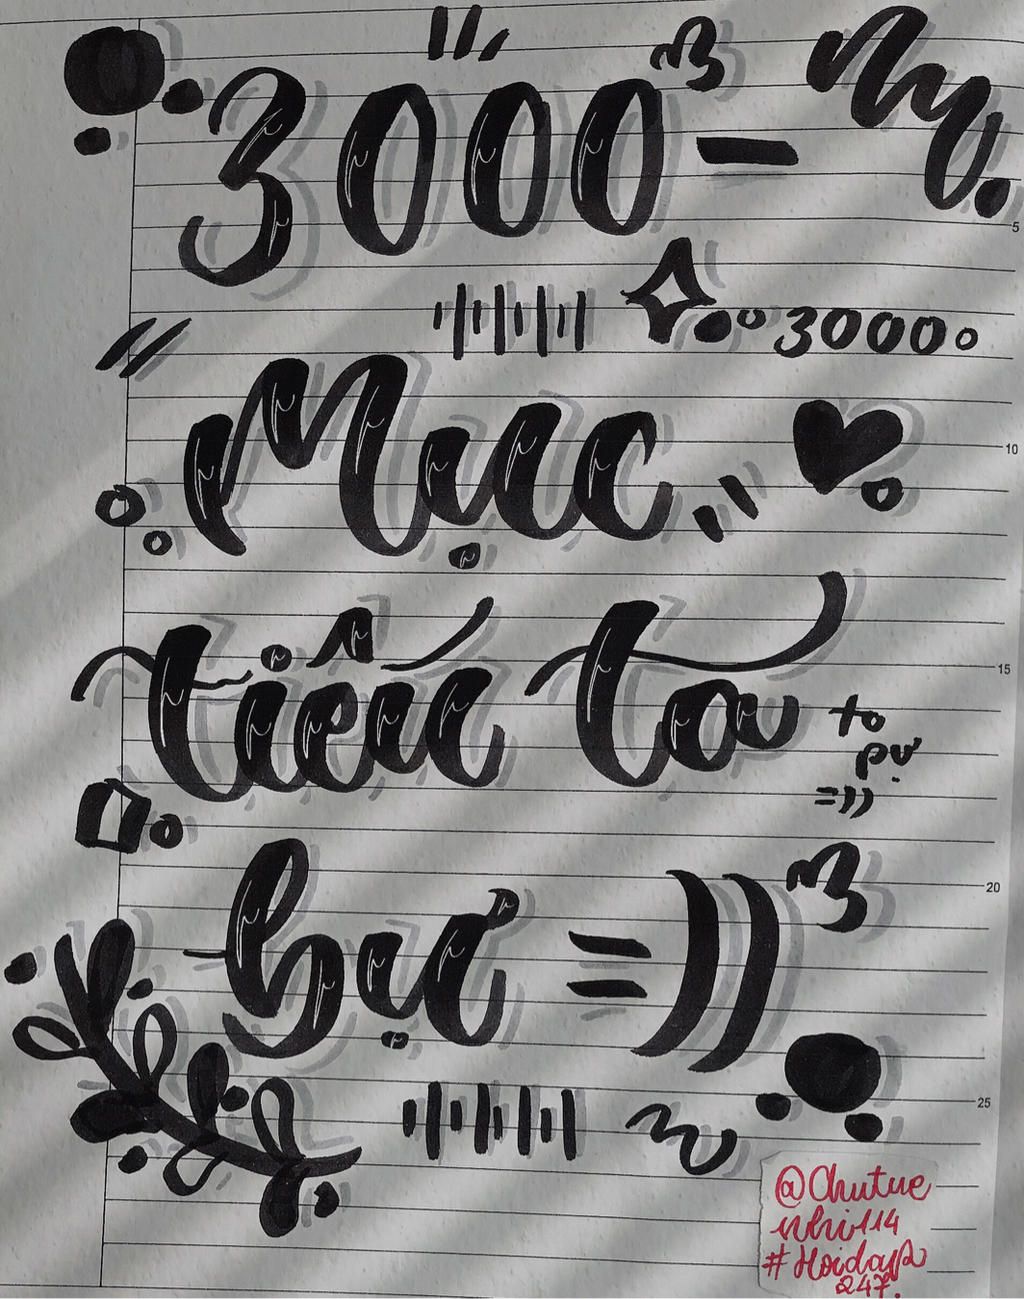 3000-
3000
Mục
tiêu to
to
pự
=))
bự =))
@Chutue
nhi114
#Hoidap
247.
5
10
15
20
25